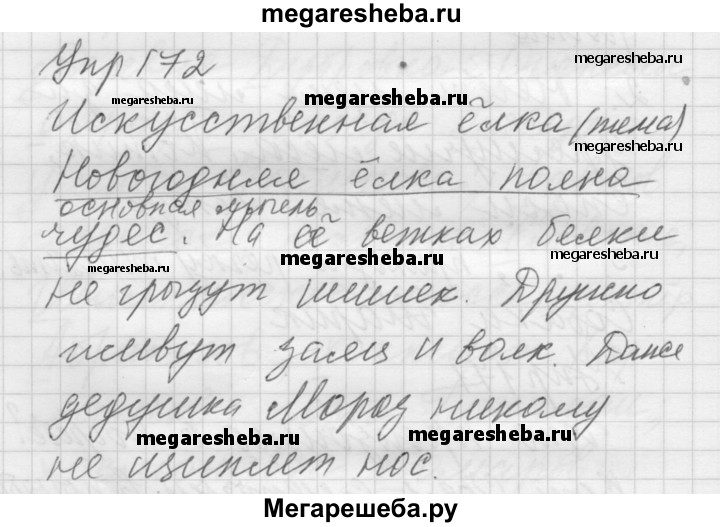 megaresheba.ru
Упр 172
megaresheba.ru
megaresheba.ru
megaresheba.ru
Искусственная ёлка (тема)
megaresheba.ru
Новогодняя ёлка полна
основная мысль
чудес. На её ветках белки
megaresheba.ru
megaresheba.ru
megaresheba.ru
не грызут шишек. Дружно
живут заяц и волк. Даже
дедушка Мороз никому
megaresheba.ru
megaresheba.ru
не щиплет нос.
Мегарешеба.ру